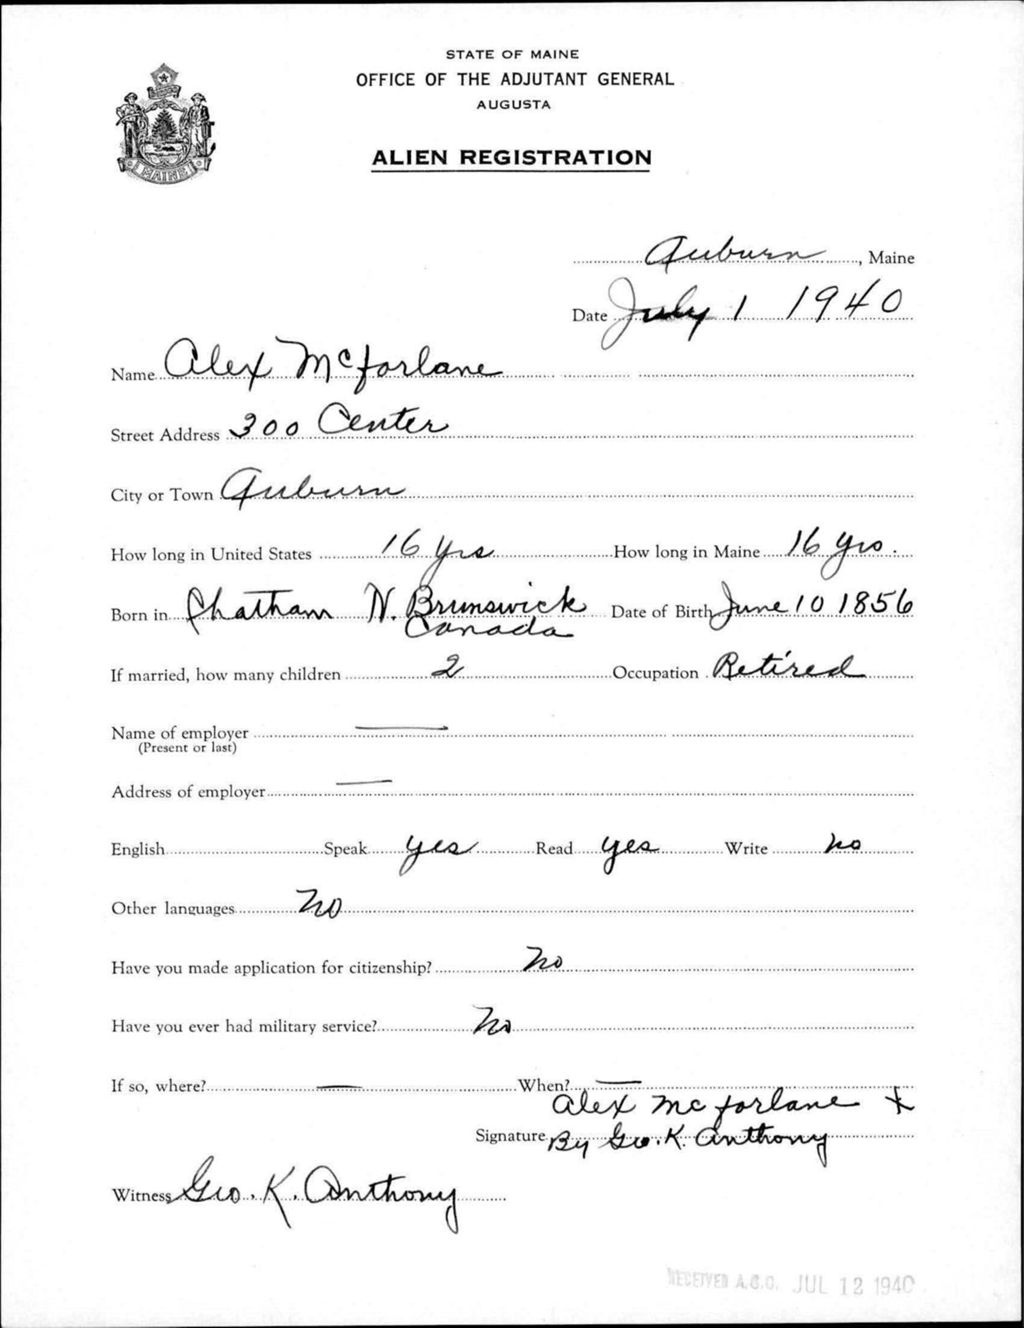 STATE OF MAINE
OFFICE OF THE ADJUTANT GENERAL
AUGUSTA
ALIEN REGISTRATION
MAINE
Auburn, Maine
Date July 1 1940
Name Alex McForlane
Street Address 300 Center
City or Town Auburn
How long in United States 16 yrs How long in Maine 16 yrs.
Born in Chatham N. Brunswick Date of Birth June 10 1856
Canada
If married, how many children 2 Occupation Retired
Name of employer —
(Present or last)
Address of employer —
English Speak yes Read yes Write no
Other languages No
Have you made application for citizenship? No
Have you ever had military service? No
If so, where? — When? —
Alex McForlane X
Signature By Geo. K. Anthony
Witness Geo. K. Anthony
RECEIVED A.G.O. JUL 12 1940